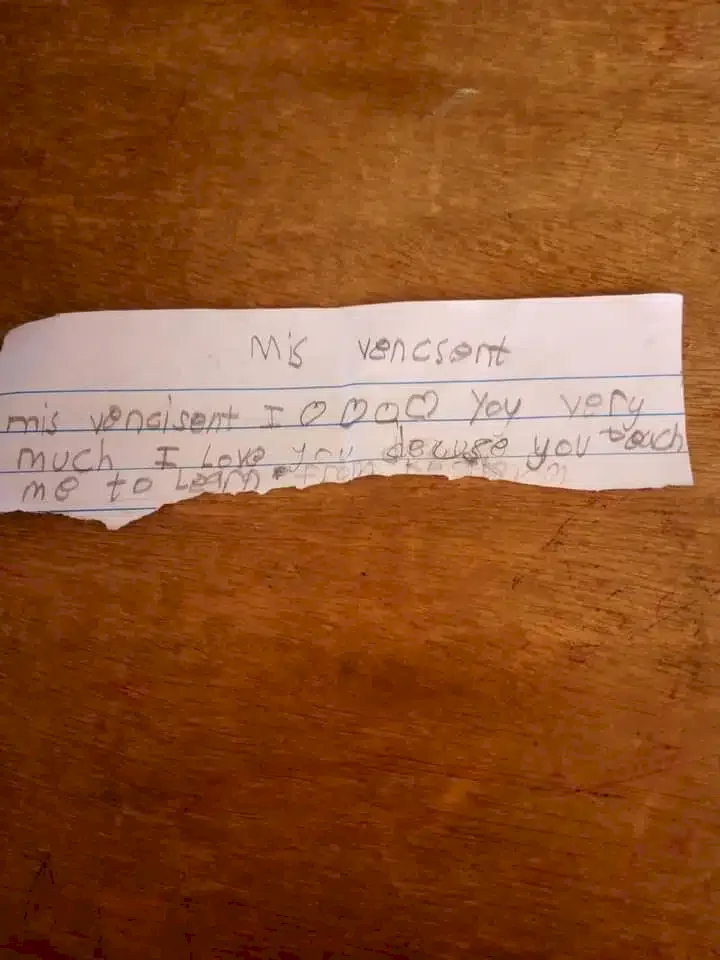 Mis vencsent
mis vencisent I ♡♡♡♡ you very
much I Love you decuse you teach
me to Learn from